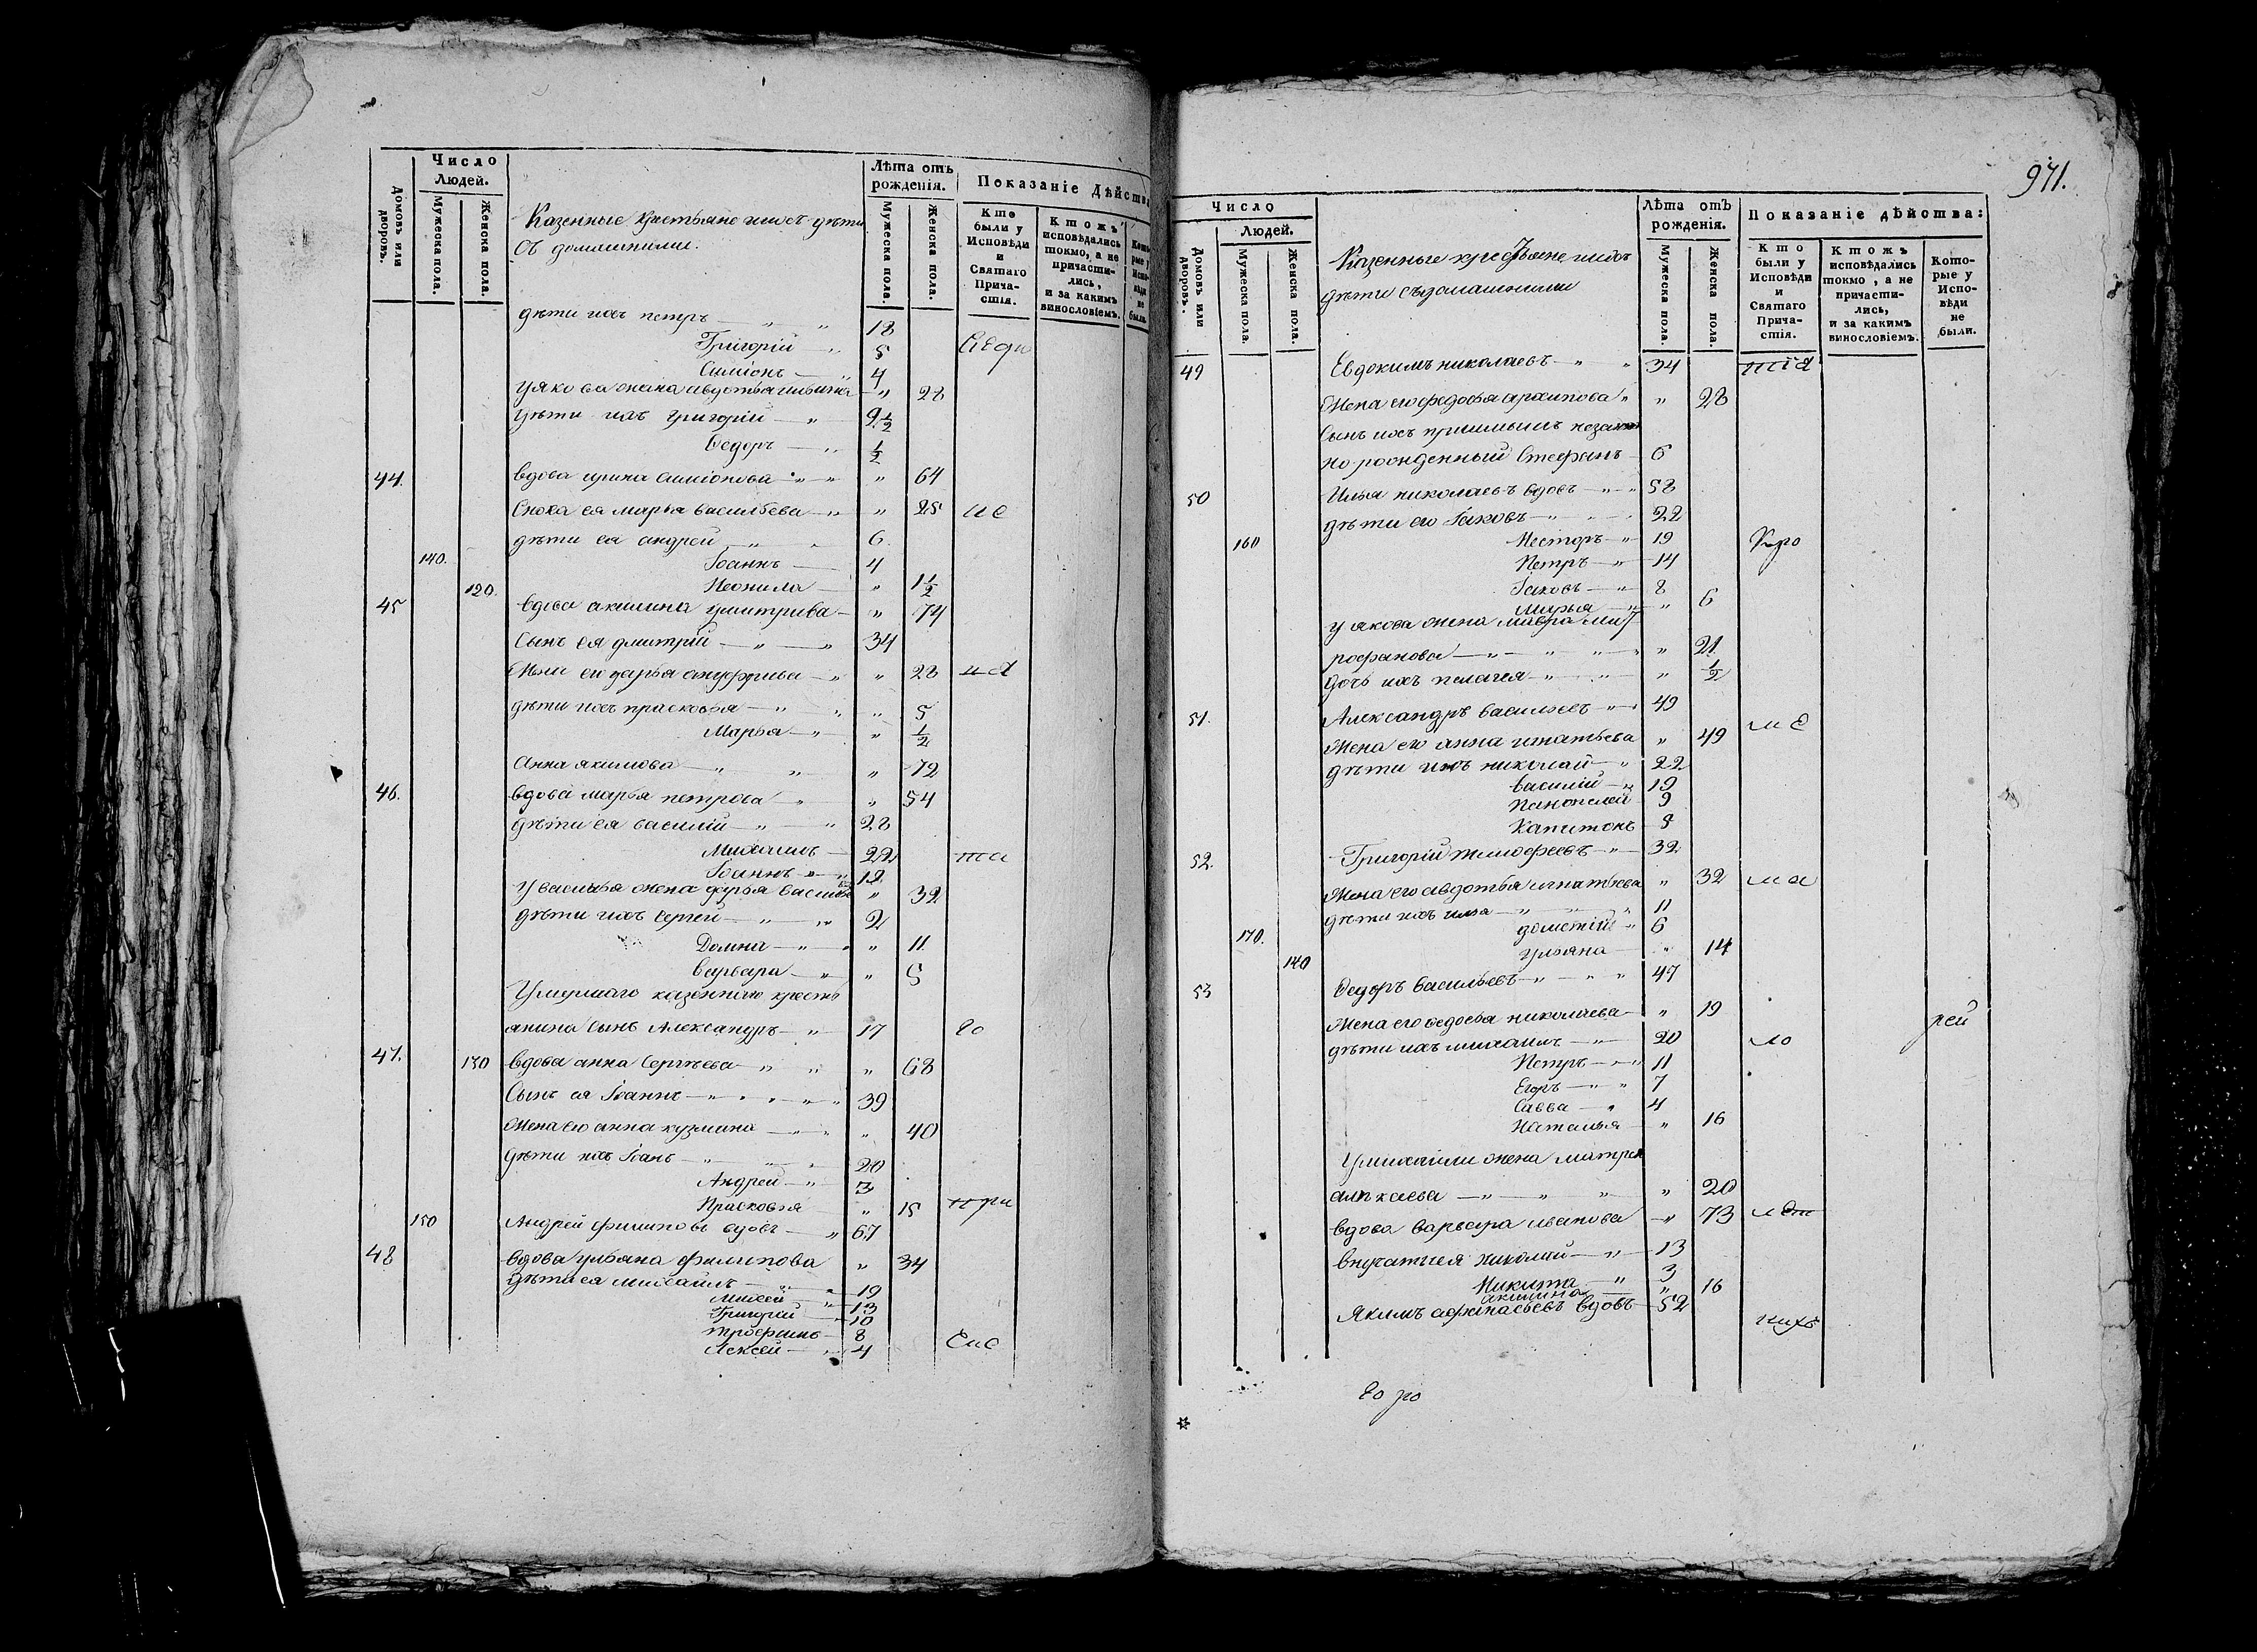 Число
Людей.
Домовъ или дворовъ.
Мужеска пола.
Женска пола.
Казенные крестьяне ихъ дѣти
съ домашними.
Лѣта отъ
рожденія.
Мужеска пола.
Женска пола.
Показаніе Дѣйства
Кто
были у
Исповѣди
и
Святаго
Прича-
стія.
Ктожъ
исповѣдались
токмо, а не
причасти-
лись,
и за какимъ
винословіемъ.
дѣти ихъ петръ — „ „ 18
Григорій — „ 8
Симіонъ — „ 4
у якова жена авдотья „ 28
дѣти ихъ григорій — „ 2 1/2
Ѳедоръ — „ 1/2
44. вдова ирина симіонова „ „ „ 64
Сноха ея марья васильева „ „ 25 ис
дѣти ея андрей — „ 6
140. Іоаннъ — 4
120. Неонила — „ 1 1/2
45 вдова акилина дмитрива — „ 74
Сынъ ея дмитрій — „ — „ 34
Жена его дарья ануфрива — „ „ 28
дѣти ихъ прасковья — „ „ „ 5
Марья — „ „ 1/2
Анна якимова — „ „ „ 72
46. вдова марья петрова „ „ 54
дѣти ея василій — „ — „ 28
Михаилъ — 22 та
Іоаннъ „ „ 12
у василья жена дарья василь „ 32
дѣти ихъ сергей — „ „ 2
Домна — „ „ „ 11
варвара — „ „ 5
Умершаго казеннаго кресть
янина сынъ Александръ — „ 17 во
47. 130 вдова анна Сергѣева — „ „ „ 68
Сынъ ея Іоаннъ — „ „ „ „ 39
Жена его анна кузмина — „ „ „ 40
дѣти ихъ Іоанъ — „ „ „ 20
Андрей — „ 3
Прасковья „ 15 при
150 Андрей филиповъ вдовъ — „ 67
48 вдова ульяна филипова „ 34
дѣти ея михаилъ — „ „ 19
Михей — „ 13
Григорій — 10
Трофимъ — 8
Алексей — „ 4
971.
Число
Людей.
Домовъ или дворовъ.
Мужеска пола.
Женска пола.
Казенные крестьяне ихъ
дѣти съ домашними
Лѣта отъ
рожденія.
Мужеска пола.
Женска пола.
Показаніе дѣйства:
Кто
были у
Исповѣди
и
Святаго
Прича-
стія.
Ктожъ
исповѣдались
токмо, а не
причасти-
лись,
и за какимъ
винословіемъ.
Кото-
рые у
Испо-
вѣди
не
были.
49 Евдокимъ николаевъ — „ „ 34 тія
Жена его федосья архипова „ „ 28
Сынъ ихъ
но рожденный Стефанъ — 6
50 Илья николаевъ вдовъ — „ „ 58
дѣти его Іаковъ — „ „ „ 22
160 Несторъ — „ 19
Петръ — „ 14
Іаковъ — „ 8
Марья — „ „ 6
у якова жена мавра мит
рофанова — „ — „ „ „ „ 21
дочь ихъ пелагея — „ „ „ 1/2
51. Александръ васильевъ „ „ 49
Жена его анна игнатьева „ 49
дѣти ихъ николай — „ 22
василій — „ 19
Пантелей 9
Капитонъ 5
52. Григорій тимофеевъ „ 32
Жена его авдотья игнатьева „ 32
дѣти ихъ илья — „ „ „ 11
170. дометій „ 6
140 ульяна „ 14
53 Ѳедоръ васильевъ — „ „ „ 47
Жена его ѳедосья николаева — „ 19 рей
дѣти ихъ михаилъ — „ 20 ло
Петръ — „ „ 11
Егоръ — „ „ 7
Савва — „ 4
Наталья „ 16
у михаила жена матрен
— „ „ „ „ 20
вдова варвара иванова — „ 73
внучата ея николай — „ 13
Никита — „ 3
акилина — „ 16
Якимъ афанасьевъ вдовъ — 52
во ро